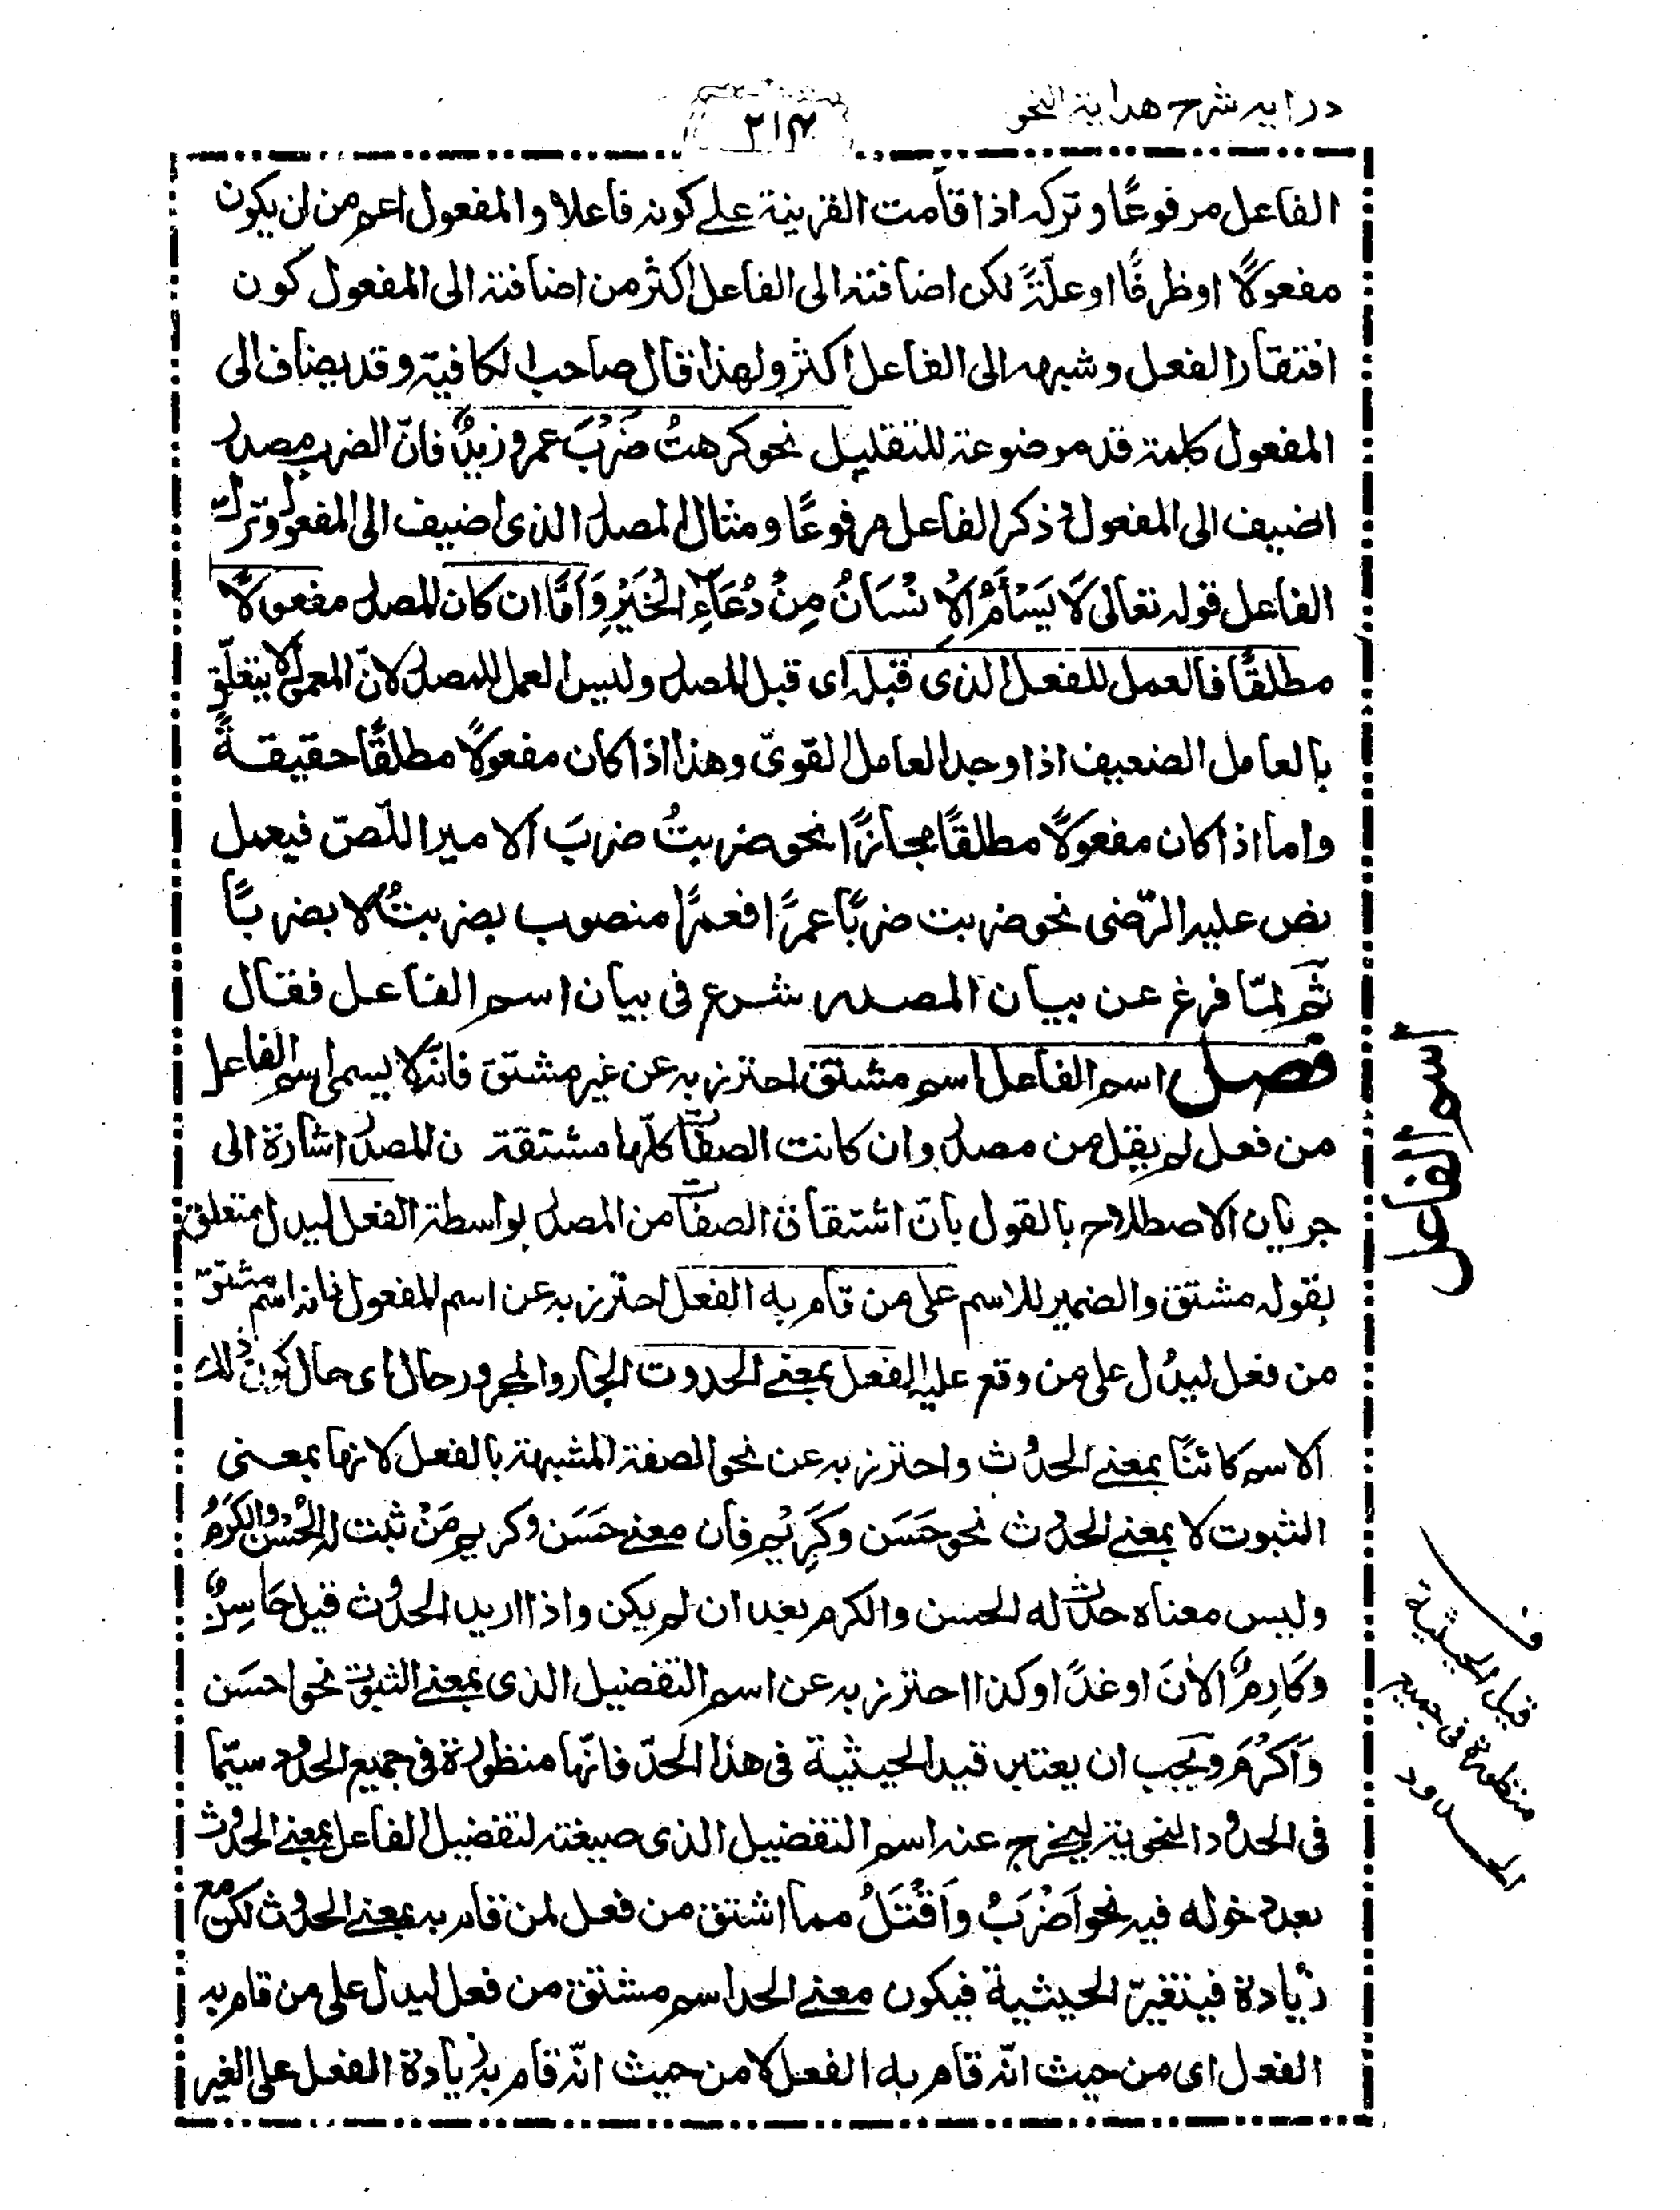 درايه شرح هداية النحو
٢١٤
الفاعل مرفوعًا وتركه اذا قامت القرينة على كونه فاعلا والمفعول اعم من ان يكون
مفعولًا اوظرفًا اوعلّةً لكن اضافته الى الفاعل اكثر من اضافته الى المفعول كون
افتقار الفعل وشبهه الى الفاعل اكثر ولهذا قال صاحب الكافية وقد يضاف الى
المفعول كلمة قد موضوعة للتقليل نحو كرهتُ ضَرْبَ عمرو زيدٌ فانّ الضرب مصدر
اضيف الى المفعول وذكر الفاعل مرفوعًا ومثال المصدر الذى اضيف الى المفعول وترك
الفاعل قوله تعالى لَا يَسْأَمُ الْاِنْسَانُ مِنْ دُعَاءِ الْخَيْرِ وَاَمَّا ان كان المصدر مفعولًا
مطلقًا فالعمل للفعل الذى قبله اى قبل المصدر وليس العمل للمصدر لانّ المعمول لا يتعلّق
بالعامل الضعيف اذا وجد العامل القوىّ وهذا اذا كان مفعولًا مطلقًا حقيقةً
واما اذا كان مفعولًا مطلقًا مجازًا نحو ضربتُ ضربَ الامير اللصّ فيعمل
نص عليه الرّضى نحو ضربت ضربًا عمرًا فعمرًا منصوب بضربتُ لا بضربًا
ثم لمّا فرغ عن بيان المصدر شرع فى بيان اسم الفاعل فقال
فصل اسم الفاعل اسم مشتق احترز به عن غير مشتق فانّه لا يسمى اسم الفاعل
من فعل لم يقل من مصدر وان كانت الصفات كلّها مشتقة ن المصدر اشارة الى
جريان الاصطلاح بالقول بانّ اشتقاق الصفات من المصدر بواسطة الفعل ليدل متعلق
بقوله مشتق والضمير للاسم على من قام به الفعل احترز به عن اسم المفعول فانه اسم مشتق
من فعل ليدُل على من وقع عليه الفعل بمعنى الحدوث الجار والمجرور حال اى حال كون ذلك
الاسم كائنًا بمعنى الحدُوث واحترز به عن نحو الصفة المشبهة بالفعل لانها بمعنى
الثبوت لا بمعنى الحدُوث نحو حَسَن وكَرِيْم فان معنى حَسَن وكريم مَنْ ثبت له الحُسْن والكَرَمُ
وليس معناه حدث له الحسن والكرم بعد ان لم يكن واذا اريد الحدُوث قيل حَاسِنٌ
وكَارِمٌ الْاٰنَ اوغدًا وكذا احترز به عن اسم التفضيل الذى بمعنى الثبوت نحو احسَن
وَاَكْرَمَ ويجب ان يعتبر قيد الحيثية فى هذا الحدّ فانّها منظورة فى جميع الحدود سيّما
فى الحدُود النحوية ليخرج عنه اسم التفضيل الذى صيغته لتفضيل الفاعل بمعنى الحدُوث
بعد دخوله فيه نحو اَضْرَبُ وَاَقْتَلُ مما اشتق من فعل لمن قام به بمعنى الحدُوث لكن مع
زيادة فيتغيّر الحيثية فيكون معنى الحد اسم مشتق من فعل ليدل على من قام به
الفعل اى من حيث انّه قام به الفعل لا من حيث انّه قام به زيادة الفعل على الغير
اسم الفاعل
ف
قيد الحيثية
منظورة فى جميع
الحدود